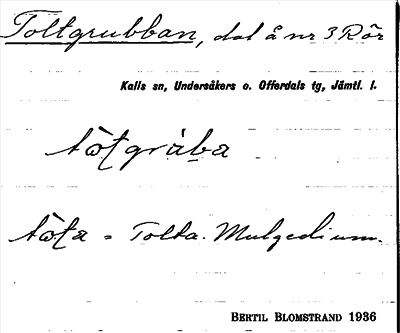 Toltgrubban, dal å nr 3 Rör
Kalls sn, Undersåkers o. Offerdals tg, Jämtl. l.
tòtgrùba
tòta = Tolta. Mulgedium.
BERTIL BLOMSTRAND 1936